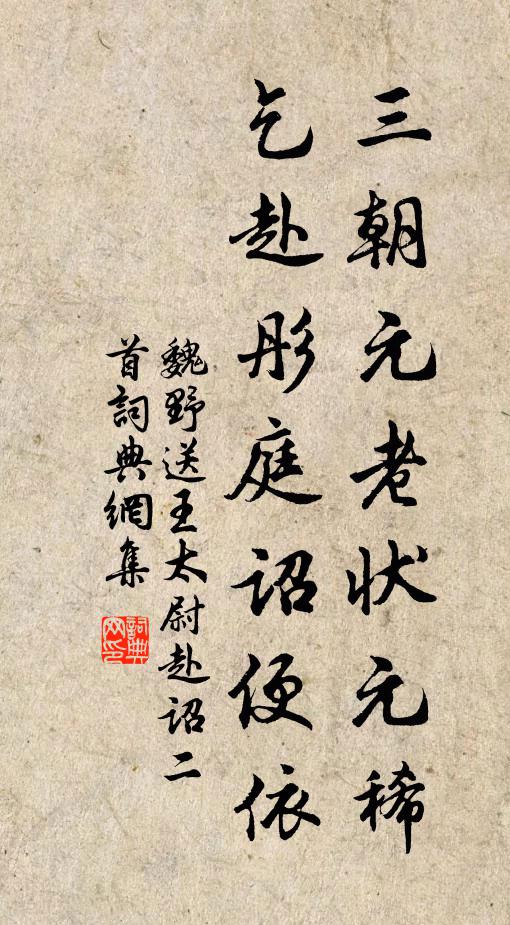 三朝元老状元稀
乞赴彤庭詔便依
魏野送王太尉赴詔二
首詞典網集
詞典
网印